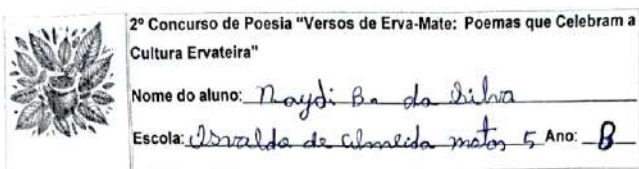 2º Concurso de Poesia "Versos de Erva-Mate: Poemas que Celebram a
Cultura Ervateira"
Nome do aluno: Naydi B. da Silva
Escola: Osvaldo de Almeida matos 5 Ano: B